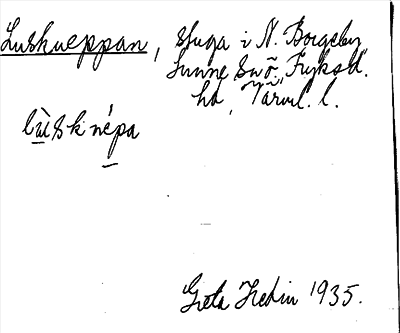 Luskneppan, stuga i N. Borgeby
Sunne sn, Fryksd.
hd, Värml. l.
lùsknépa
Greta Hedin 1935.